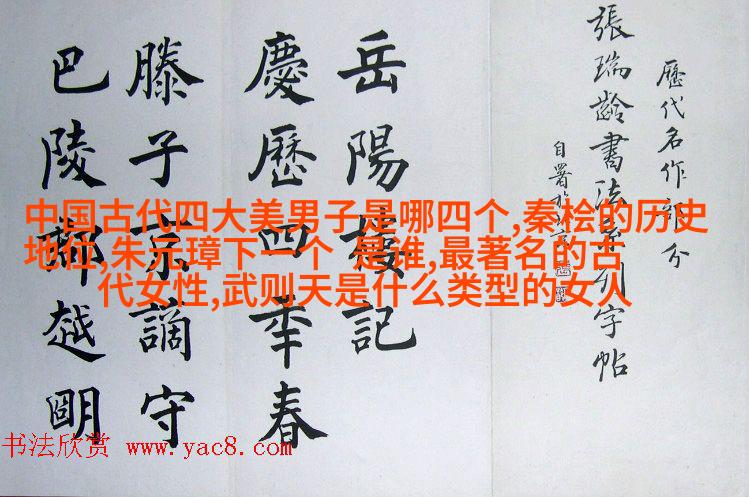 歷代名作部分
張瑞齡書法系列字帖
自署
岳陽樓記
慶歷四年春
滕子京謫守
巴陵郡越明
中国古代四大美男子是哪四个,秦桧的历史
地位,朱元璋下一个 是谁,最著名的古
代女性,武则天是什么类型的女人
书法欣赏 www.yac8.com